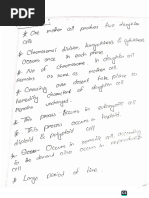 # One mother cell produce two daughter
cell
# Chromosomal division, karyokinesis & cytokinesis
Occurs once in each phase
# No of chromosome in daughter cell
remains as same as mother cell
# Crossing over doesn't take place so
heredity characters of daughter cell
remains unchanged.
# This process occurs in eukaryotic cell
# This process occurs in haploid,
diploid & polyploid cell
# Occurs in somatic cell, according
to the demand also occurs in reproducing
cell
# Large period of time